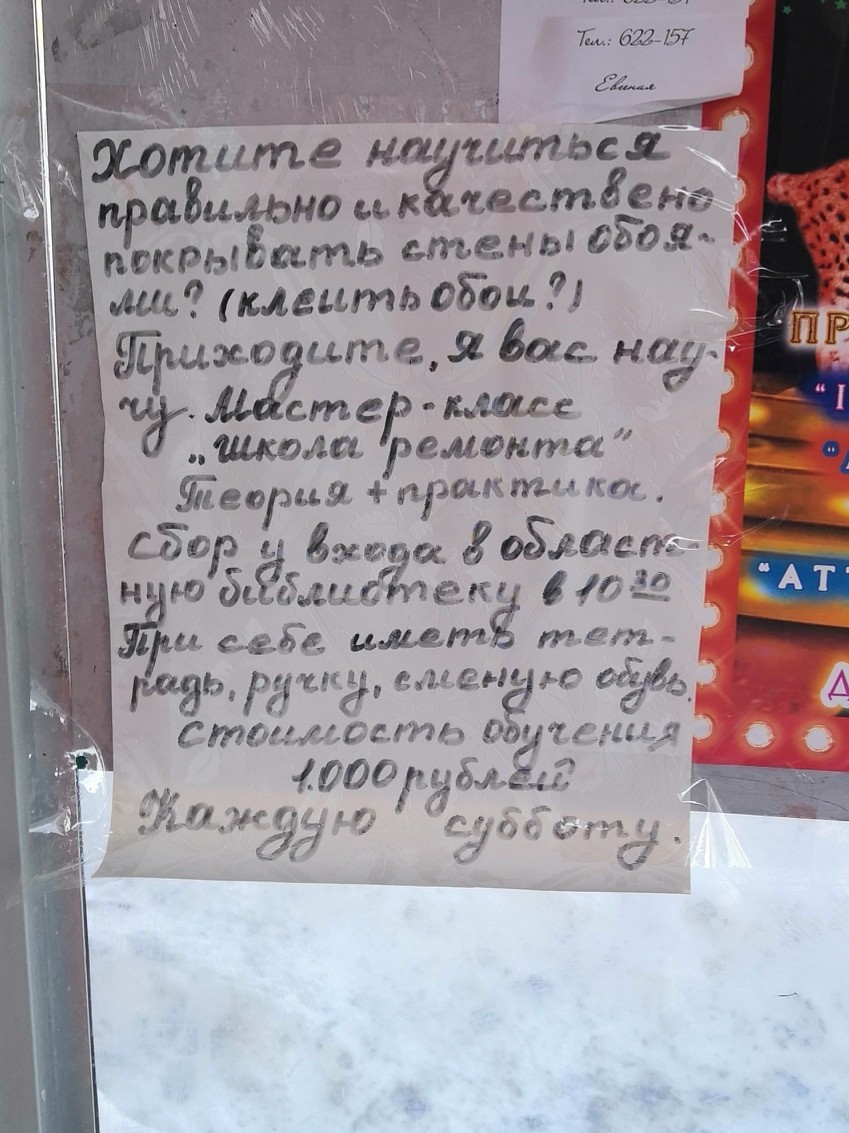 Тел.: 622-157
Евгения
Хотите научиться
правильно и качествено
покрывать стены обоя-
ми? (клеить обои?)
Приходите, я вас нау-
чу. Мастер-класс
„школа ремонта"
Теория + практика.
сбор у входа в област-
ную библиотеку в 10 30
При себе иметь тет-
радь, ручку, сменую обувь.
стоимость обучения
1.000 рублей
Каждую субботу.
ПР
"АТ